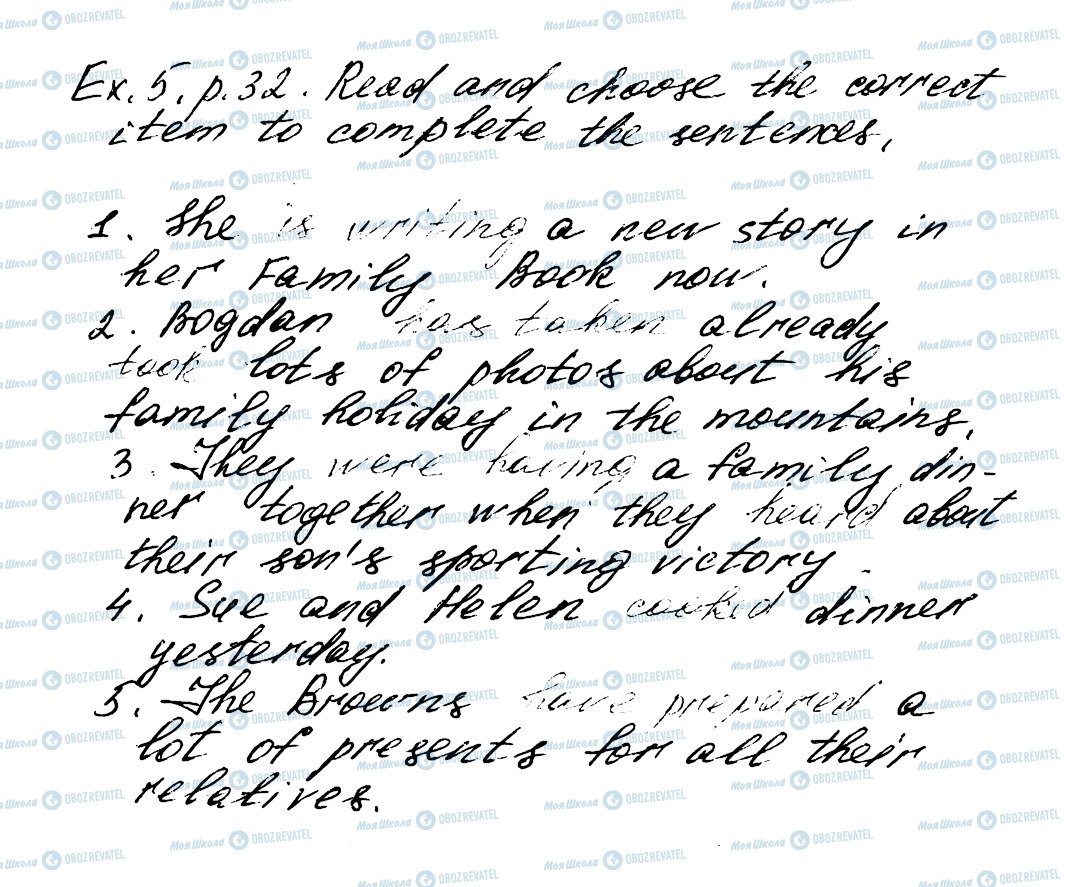 Ex. 5, p. 32. Read and choose the correct
item to complete the sentences.
1. She is writing a new story in
her Family Book now.
2. Bogdan has taken already
took lots of photos about his
family holiday in the mountains.
3. They were having a family din-
ner together when they heard about
their son's sporting victory.
4. Sue and Helen cooked dinner
yesterday.
5. The Browns have prepared a
lot of presents for all their
relatives.